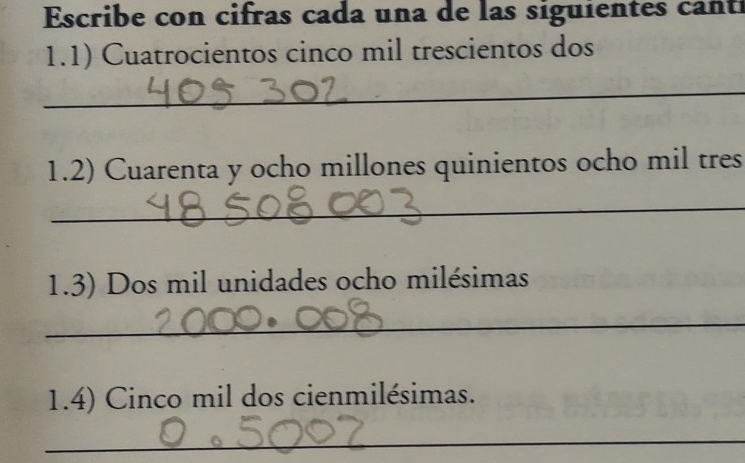 Escribe con cifras cada una de las siguientes canti
1.1) Cuatrocientos cinco mil trescientos dos
405 302
1.2) Cuarenta y ocho millones quinientos ocho mil tres
48 508 003
1.3) Dos mil unidades ocho milésimas
2000.008
1.4) Cinco mil dos cienmilésimas.
0.5002